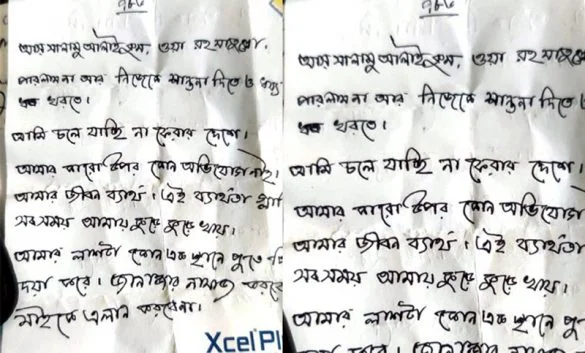 ৭৮৬
আস সালামু আলাইকুম, ওয়া রহমাতুল্লা.
পারলাম না আর নিজেকে শান্তনা দিতে ও
ধরতে।
আমি চলে যাচ্ছি না ফেরার দেশে।
আমার কারো উপর কোন অভিযোগ নাই।
আমার জীবন ব্যার্থ। এই ব্যার্থতা
সব সময় আমায় কুড়ে কুড়ে খায়।
আমার লাশটা কোন এক স্থানে পুতে
দয়া করে। জানাজার নামাজ
মাইকে এলান করবেনা।
XcelPl
৭৮৬
আস সালামু আলাইকুম, ওয়া রহমাতুল্লা
পারলাম না আর নিজেকে শান্তনা দিতে
ধরতে।
আমি চলে যাচ্ছি না ফেরার দেশে।
আমার কারো উপর কোন অভিযোগ
আমার জীবন ব্যার্থ। এই ব্যার্থতা
সব সময় আমায় কুড়ে কুড়ে খায়।
আমার লাশটা কোন এক স্থানে পু